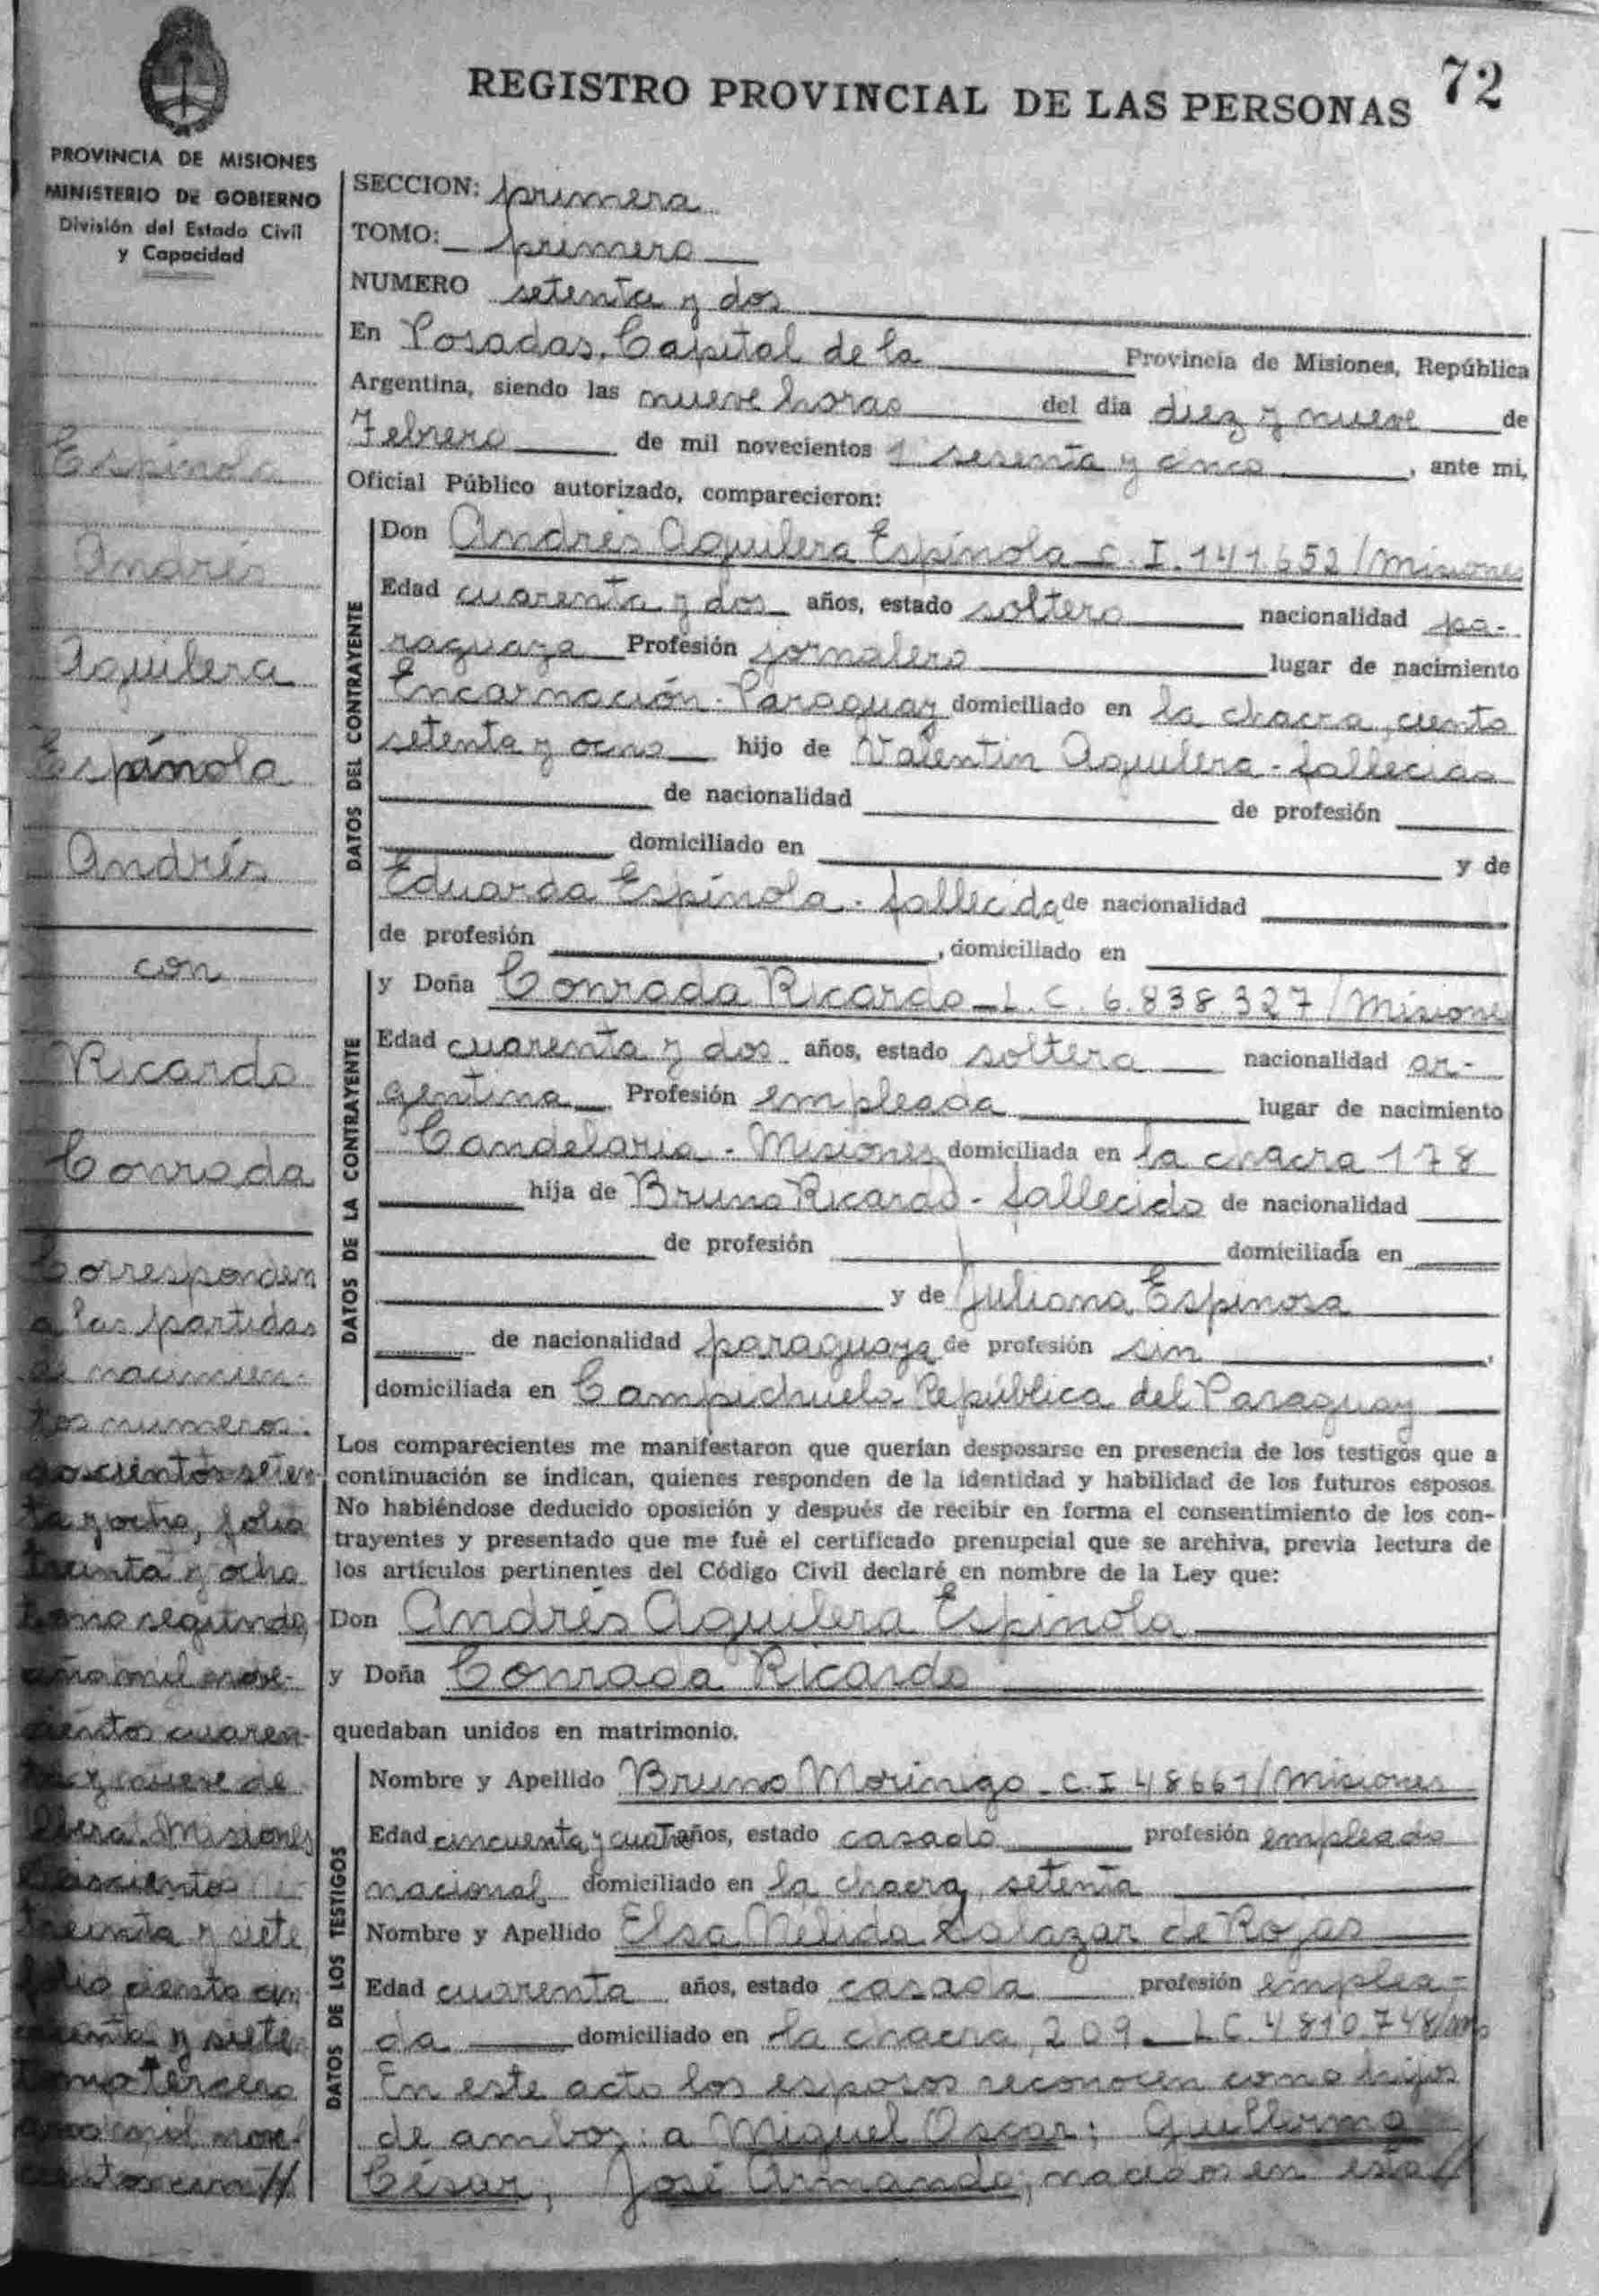 72
REGISTRO PROVINCIAL DE LAS PERSONAS
PROVINCIA DE MISIONES
MINISTERIO DE GOBIERNO
División del Estado Civil
y Capacidad
Espinola
Andrés
Aguilera
Espínola
Andrés
con
Ricardo
Conrada
Corresponden
a las partidas
de nacimien-
tos numeros:
doscientos seten-
ta y ocho, folio
treinta y ocho
tomo segundo,
año mil nove-
cientos cuaren-
ta y nueve de
Obera. Misiones
treinta y siete
folio ciento cin
cuenta y siete
tomo tercero
año mil nove-
cientos cua//
SECCION: primera
TOMO: primero
NUMERO setenta y dos
En Posadas, Capital de la Provincia de Misiones, República
Argentina, siendo las nueve horas del día diez y nueve de
Febrero de mil novecientos sesenta y cinco, ante mi,
Oficial Público autorizado, comparecieron:
DATOS DEL CONTRAYENTE
Don Andrés Aguilera Espínola C.I. 141.652/Misiones
Edad cuarenta y dos años, estado soltero nacionalidad pa-
raguaya Profesión jornalero lugar de nacimiento
Encarnación - Paraguay domiciliado en la chacra, ciento
setenta y ocho hijo de Valentín Aguilera - fallecido
de nacionalidad de profesión
domiciliado en y de
Eduarda Espínola - fallecida de nacionalidad
de profesión , domiciliado en
DATOS DE LA CONTRAYENTE
y Doña Conrada Ricardo - L.C. 6.838.327/Misiones
Edad cuarenta y dos años, estado soltera nacionalidad ar-
gentina Profesión empleada lugar de nacimiento
Candelaria - Misiones domiciliada en la chacra 178
hija de Bruno Ricardo - fallecido de nacionalidad
de profesión domiciliada en
y de Juliana Espinosa
de nacionalidad paraguaya de profesión sin ,
domiciliada en Campichuelo República del Paraguay
Los comparecientes me manifestaron que querían desposarse en presencia de los testigos que a
continuación se indican, quienes responden de la identidad y habilidad de los futuros esposos.
No habiéndose deducido oposición y después de recibir en forma el consentimiento de los con-
trayentes y presentado que me fué el certificado prenupcial que se archiva, previa lectura de
los artículos pertinentes del Código Civil declaré en nombre de la Ley que:
Don Andrés Aguilera Espínola
y Doña Conrada Ricardo
quedaban unidos en matrimonio.
DATOS DE LOS TESTIGOS
Nombre y Apellido Bruno Morinigo - C.I 48661/Misiones
Edad cincuenta y cuatro años, estado casado profesión empleado
nacional domiciliado en la chacra, setenta
Nombre y Apellido Elsa Nélida Salazar de Rojas
Edad cuarenta años, estado casada profesión emplea-
da domiciliado en la chacra, 209 - L.C. 4.810.748/mns
En este acto los esposos reconocen como hijos
de ambos: a Miguel Oscar; Guillermo
César; José Armando; nacidos en esta//